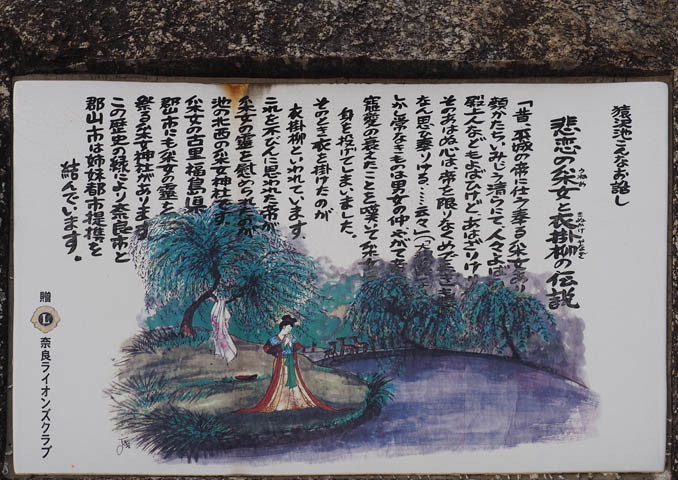 猿沢池こんなお話し
悲恋の采女と衣掛柳の伝説
うねめ きぬかけやなぎ
「昔、平城の帝に仕え奉る采女あり
顔かたちいみじう清らにて人々よば
殿上人などもよばひけど、あはざりけり
そのあはぬ心は、帝を限りなくめでたき
なん思ひ奉りける……云々」(大和
ふと常なきものは男女の仲やがて帝
寵愛の衰えたことを嘆いて采女
身を投げてしまいました。
そのとき衣を掛けたのが
衣掛柳といわれています。
これを不びんに思われた帝が
采女の霊を慰められたのが
池の北西の采女神社です。
采女の古里福島県
郡山市にも采女の霊を
祭る采女神社があります。
この歴史の縁により奈良市と
郡山市は姉妹都市提携を
結んでいます。
贈 L 奈良ライオンズクラブ